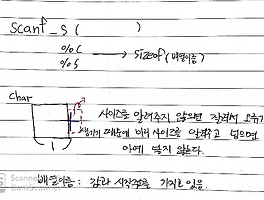 scanf_s (            )
%c
%s → sizeof(배열이름)
char
사이즈를 알려주지 않으면 잘려서 오류가
생기기 때문에 미리 사이즈를 알려주고 넘으면
1
아예 받지 않는다.
배열이름: 값과 시작주소를 가지고 있음